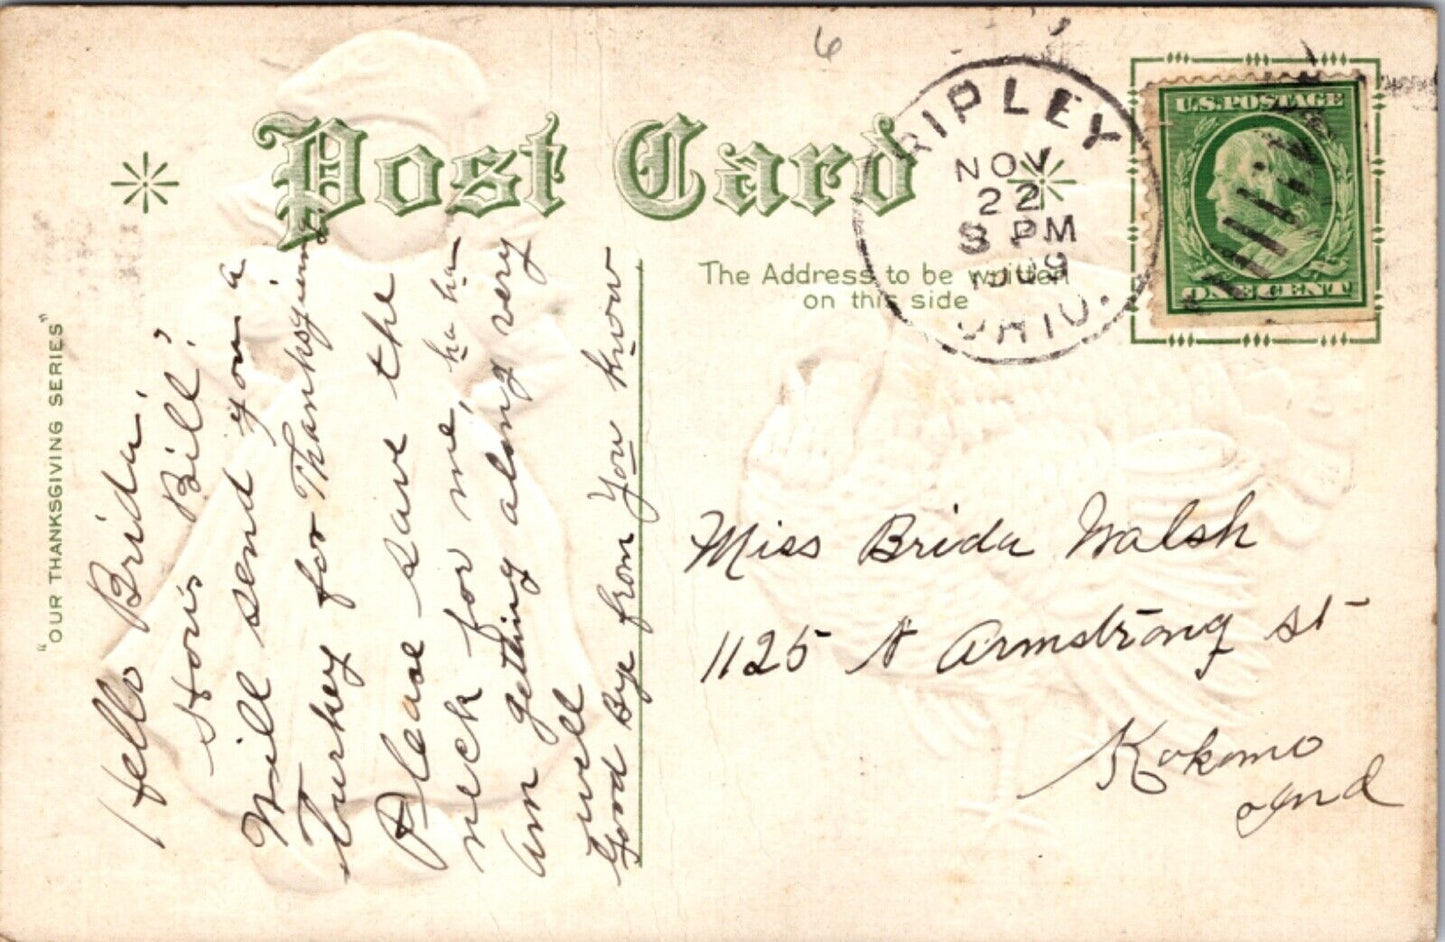 6
Post Card
"OUR THANKSGIVING SERIES"
The Address to be written
on this side
RIPLEY
NOV
22
8 PM
1909
OHIO.
U.S. POSTAGE
ONE CENT
Hello Brida.
How's Bill?
Will send you a
Turkey for Thanksgiving
Please save the
neck for me, ha ha
Am getting along very
well
Good Bye from You know
Miss Brida Walsh
1125 N Armstrong st
Kokomo
Ind